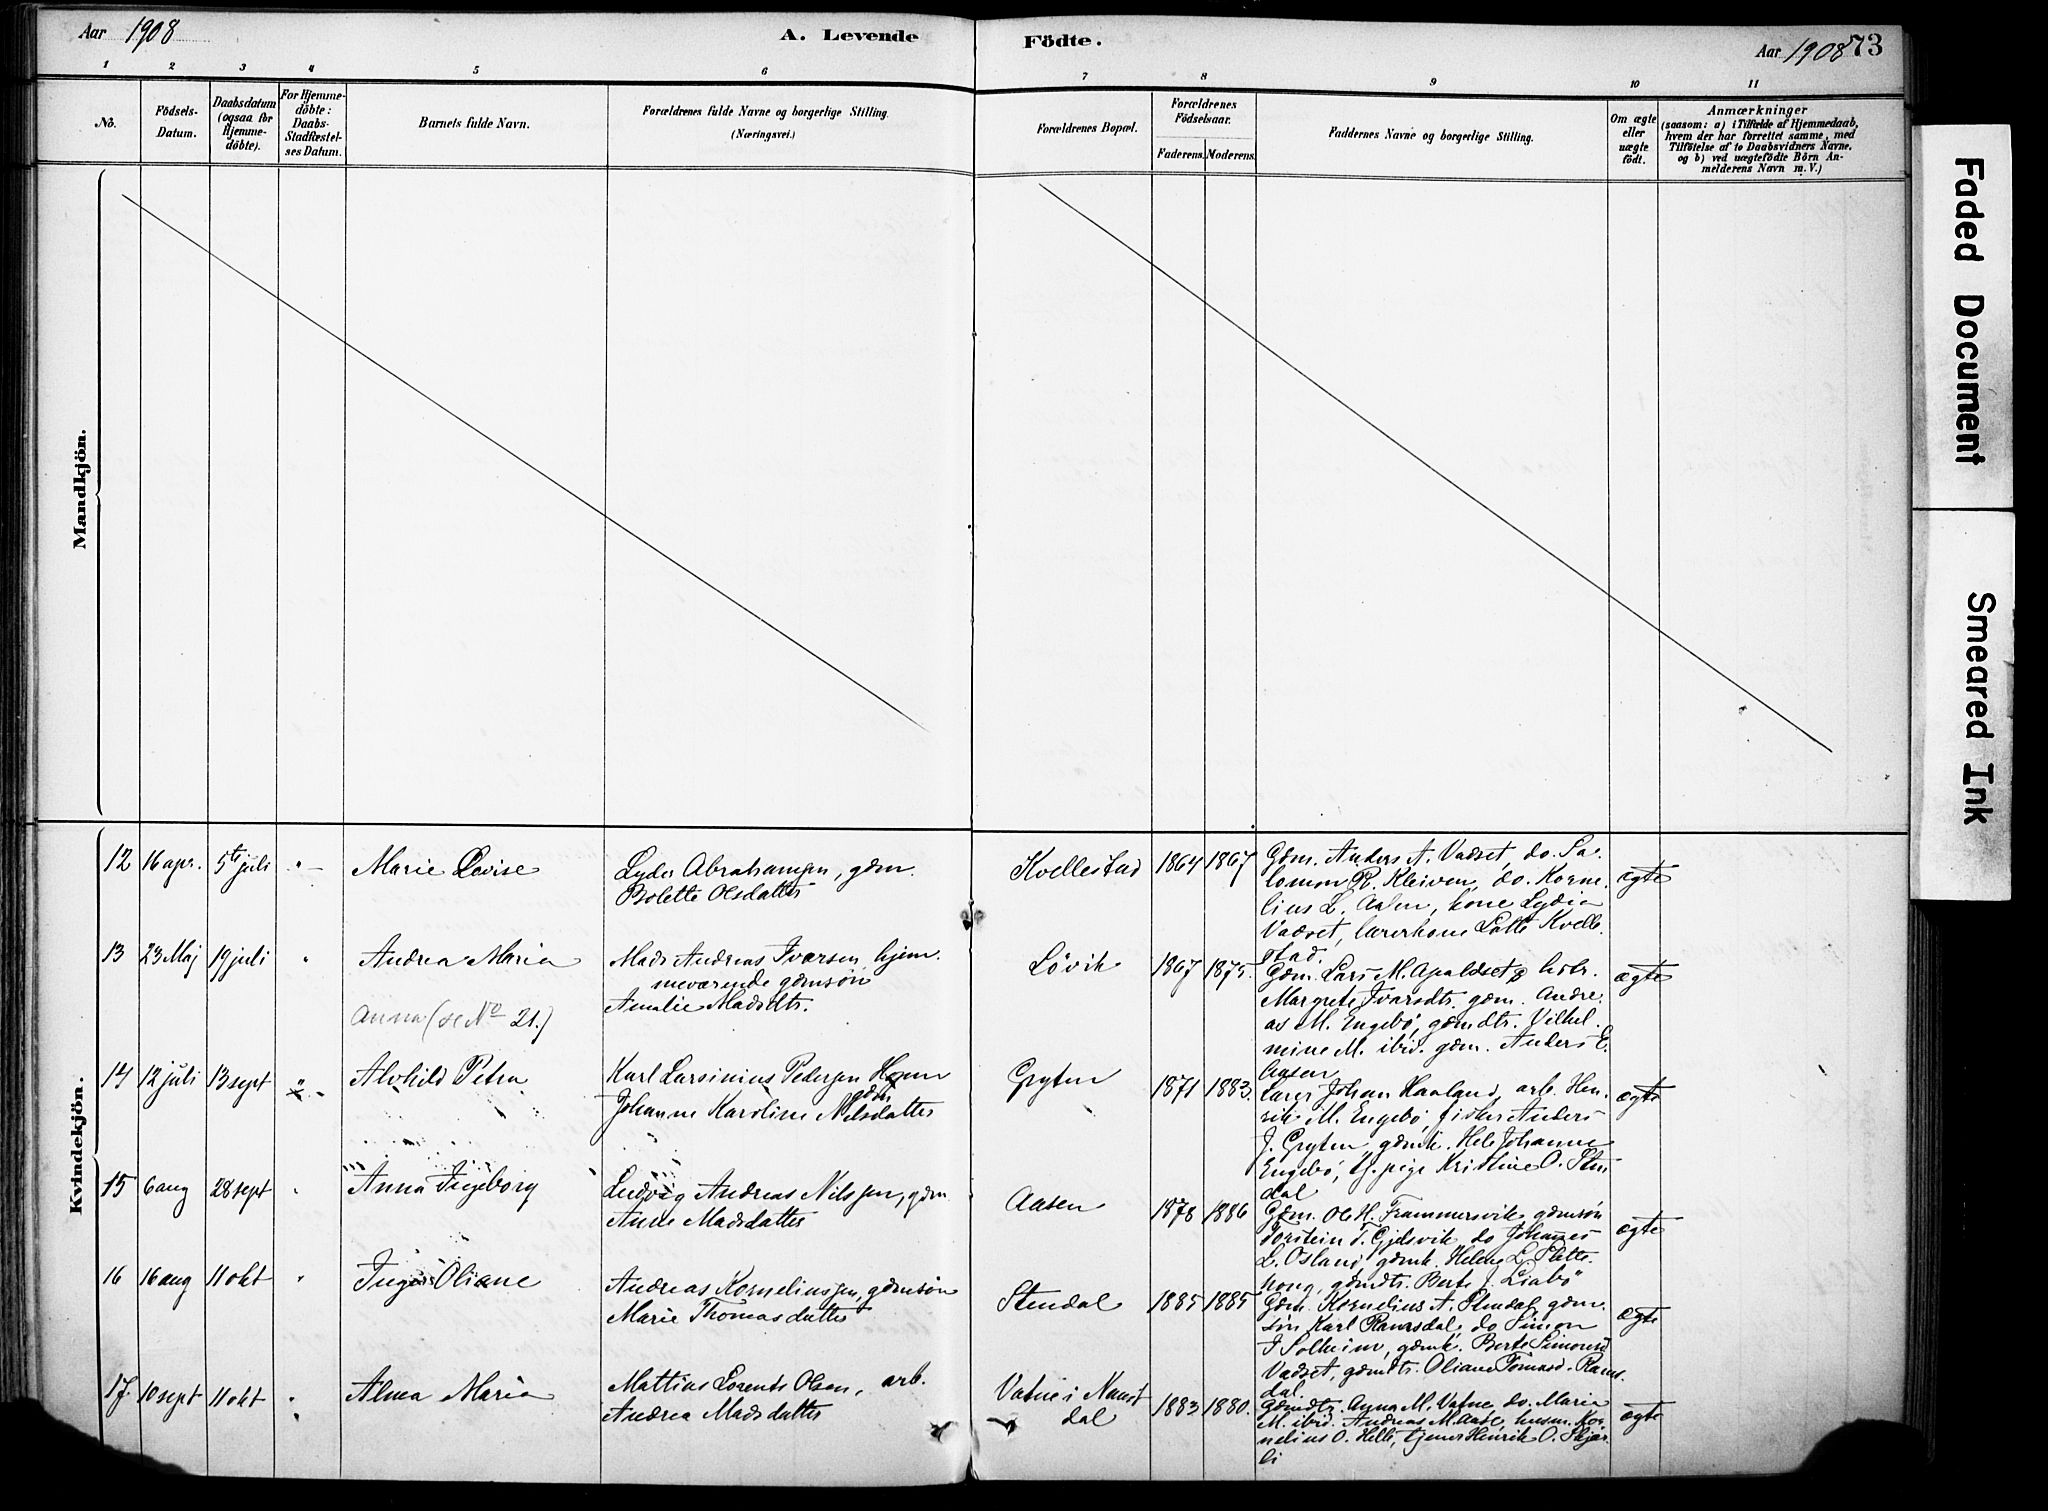 Aar 1908
A. Levende
Födte.
Aar 1908
73
1 2 3 4 5 6 7 8 9 10 11
Nô.
Födsels-
Datum.
Daabsdatum
(ogsaa for
Hjemme-
döbte).
For Hjemme-
döbte:
Daabs-
Stadfæstel-
ses Datum.
Barnets fulde Navn.
Forældrenes fulde Navne og borgerlige Stilling.
(Næringsvei.)
Forældrenes Bopæl.
Forældrenes
Födselsaar.
Faderens. Moderens.
Faddernes Navne og borgerlige Stilling.
Om ægte
eller
uægte
födt.
Anmærkninger
(saasom: a) i Tilfælde af Hjemmedaab,
hvem der har forrettet samme, med
Tilföielse af to Daabsvidners Navne,
og b) ved uægtefödte Börn An-
melderens Navn m. V.)
Mandkjön.
Kvindekjön.
12 16 apr. 5te juli " Marie Lovise
Lyder Abrahamsen, gdm.
Bolette Olsdatter
Kvellestad 1864 1867
Gdm. Anders A. Vadset, do. Sa-
lomon R. Kleiven, do. Korne-
lius L. Aasen, kone Lydia
Vadset, lærerkone Lotte Kvelle-
stad.
ægte
13 23 Maj 19 juli " Andrea Maria
Anna (se No 21.)
Mads Andreas Ivarsen, hjem-
meværende gdmsøn
Amalie Madsdtr.
Lövik 1867 1875.
Gdm. Lars M. Apaldset & hstr.
Margrete Ivarsdtr. gdm. Andre-
as M. Engebö, gdmdtr. Vilhel-
mine M. ibid. gdm. Anders E.
Aasen
ægte
14 12 juli 13 sept " Alvhild Petra
Karl Larsinius Pedersen
gdm
Johanne Karoline Nilsdatter
Gryten 1871 1883.
Lærer Johan Haaland, arb. Hen-
rik M. Engebö, fisker Anders
J. Gryten, gdmk. Johanne
Engebö, tj. pige Kristine O. Sten
dal
ægte
15 6 aug 28 sept " Anna Ingeborg
Ludvig Andreas Nilssen, gdm
Anne Madsdatter
Aasen 1878 1886
Gdm. Ole H. Frammersvik gdmsøn
Torstein T. Gjelsvik do Johannes
L. Osland, gdmk. Helene L.
gdmdtr. Berte J. Liabö
ægte
16 16 aug 11 okt " Inga Oliane
Andreas Korneliussen, gdmsøn
Marie Thomasdatter
Stendal 1885 1885
Gdm. Kornelius A. Stendal, gdm-
søn Karl Ramsdal, do Simon
I Solheim, gdmk. Berte Simonsd
Vadset, gdmdtr. Oliane Tomasd. Rams-
dal.
ægte
17 10 sept 11 okt " Alma Maria
Mattias Lorents Olsen, arb.
Andrea Madsdatter
Vatne i Naust
dal 1883 1880.
Gdmdtr. Anna M. Vatne, do. Maria
M. ibid. Andreas M. Aase, husm. Kor-
nelius O. Helle, tjener Henrik O. Skjær-
li
ægte
Faded Document
Smeared Ink